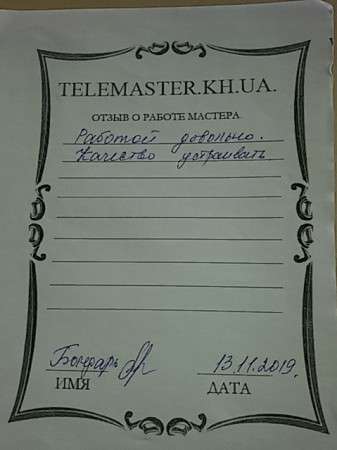 TELEMASTER.KH.UA.
ОТЗЫВ О РАБОТЕ МАСТЕРА.
Работой довольно.
Качество устраивать
Бондарь 13.11.2019.
ИМЯ ДАТА